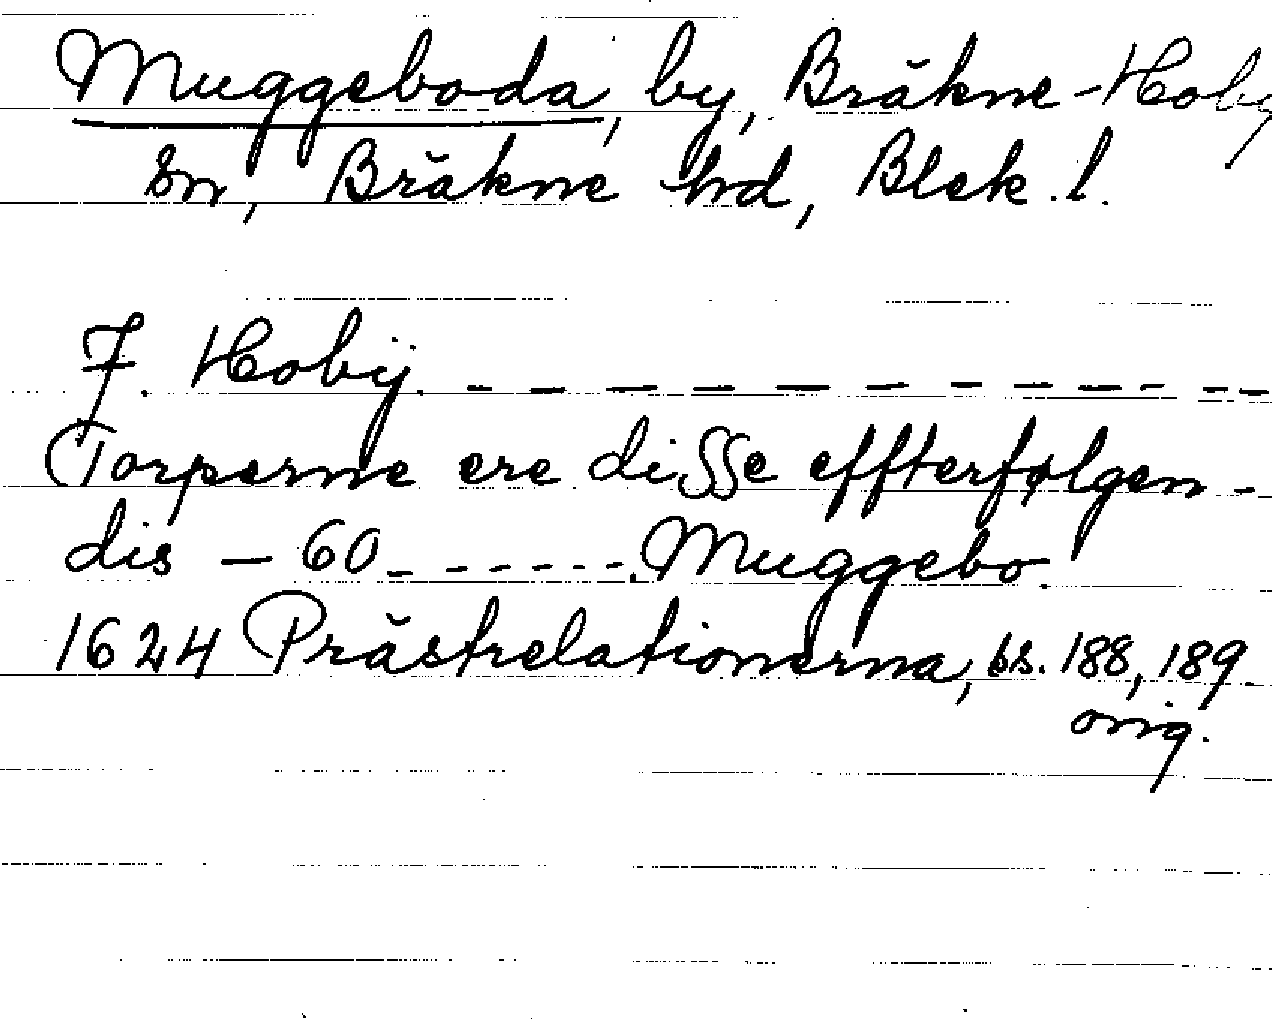 Muggeboda, by, Bräkne-Hoby
sn, Bräkne hd, Blek. l.
J. Hobÿ. – – – – – – – – – –
Torperne ere disse effterfølgen-
dis – 60 – – – – – – . Muggebo.
1624 Prästrelationerna, bs. 188, 189.
orig.